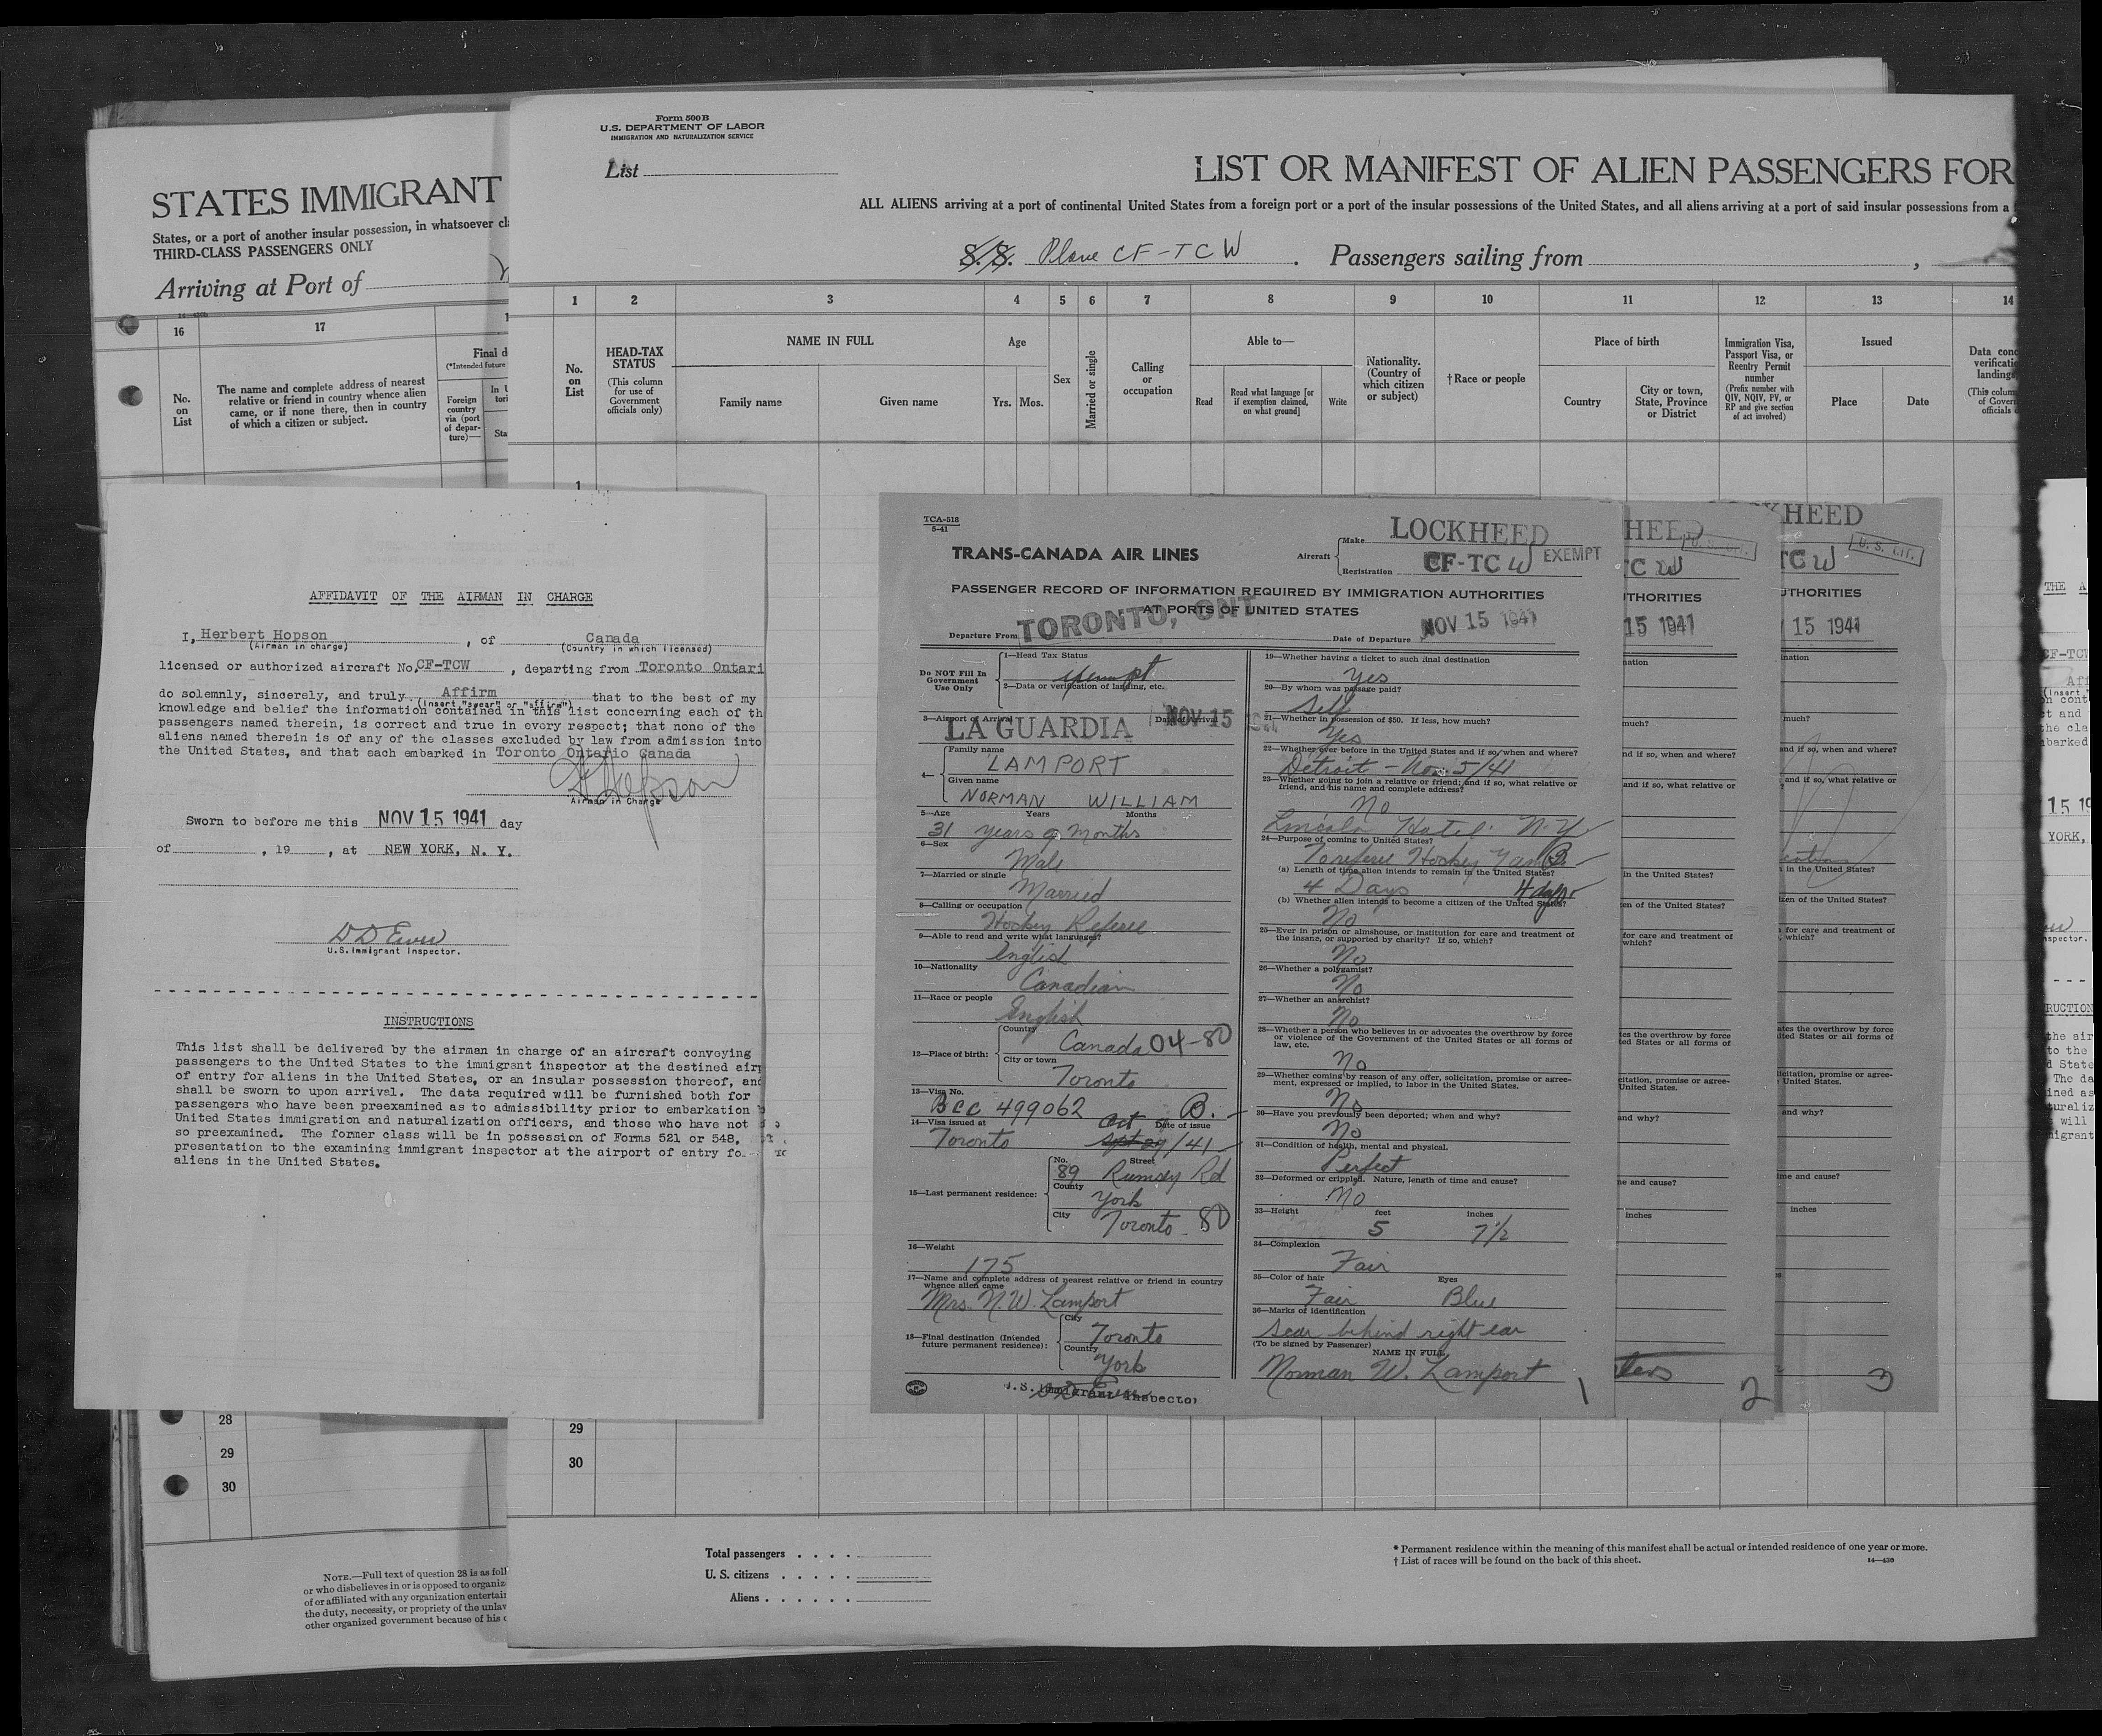 STATES IMMIGRANT
States, or a port of another insular possession, in whatsoever
THIRD-CLASS PASSENGERS ONLY
Arriving at Port of
16
17
No.
on
List
The name and complete address of nearest
relative or friend in country whence alien
came, or if none there, then in country
of which a citizen or subject.
Final
(*Intended future
Foreign
country
via (port
of depar-
ture)—
28
29
30
NOTE.—Full text of question 28 is as
or who disbelieves in or is opposed to
of or affiliated with any organization
the duty, necessity, or propriety of the
other organized government because of his
Form 500B
U.S. DEPARTMENT OF LABOR
IMMIGRATION AND NATURALIZATION SERVICE
List
LIST OR MANIFEST OF ALIEN PASSENGERS FOR
ALL ALIENS arriving at a port of continental United States from a foreign port or a port of the insular possessions of the United States, and all aliens arriving at a port of said insular possessions from a
S.S. Plane CF-TCW. Passengers sailing from ,
1 2 3 4 5 6 7 8 9 10 11 12 13 14
No.
on
List
HEAD-TAX
STATUS
(This column
for use of
Government
officials only)
NAME IN FULL
Family name
Given name
Age
Yrs. Mos.
Sex
Married or single
Calling
or
occupation
Able to—
Read
Read what language [or
if exemption claimed,
on what ground]
Write
Nationality.
(Country of
which citizen
or subject)
†Race or people
Place of birth
Country
City or town,
State, Province
or District
Immigration Visa,
Passport Visa, or
Reentry Permit
number
(Prefix number with
QIV, NQIV, PV, or
RP and give section
of act involved)
Issued
Place
Date
1
29
30
Total passengers . . . .
U. S. citizens . . . . .
Aliens . . . . . .
* Permanent residence within the meaning of this manifest shall be actual or intended residence of one year or more.
† List of races will be found on the back of this sheet.
14—430
AFFIDAVIT OF THE AIRMAN IN CHARGE
I, Herbert Hopson , of Canada
(Airman in charge) (Country in which licensed)
licensed or authorized aircraft No. CF-TCW , departing from Toronto Ontari
do solemnly, sincerely, and truly Affirm that to the best of my
(insert "swear" or "affirm")
knowledge and belief the information contained in this list concerning each of th
passengers named therein, is correct and true in every respect; that none of the
aliens named therein is of any of the classes excluded by law from admission into
the United States, and that each embarked in Toronto Ontario Canada
H Hopson
Airman in Charge
Sworn to before me this NOV 15 1941 day
of , 19 , at NEW YORK, N. Y.
U.S. Immigrant Inspector.
INSTRUCTIONS
This list shall be delivered by the airman in charge of an aircraft conveying
passengers to the United States to the immigrant inspector at the destined air
of entry for aliens in the United States, or an insular possession thereof, and
shall be sworn to upon arrival. The data required will be furnished both for
passengers who have been preexamined as to admissibility prior to embarkation
United States immigration and naturalization officers, and those who have not
so preexamined. The former class will be in possession of Forms 521 or 548,
presentation to the examining immigrant inspector at the airport of entry fo
aliens in the United States.
TCA-518
5-41
TRANS-CANADA AIR LINES
Aircraft
Make LOCKHEED
Registration CF-TCW EXEMPT
PASSENGER RECORD OF INFORMATION REQUIRED BY IMMIGRATION AUTHORITIES
AT PORTS OF UNITED STATES
Departure From TORONTO, ONT Date of Departure NOV 15 1941
Do NOT Fill In
Government
Use Only
1—Head Tax Status
exempt
2—Data or verification of landing, etc.
3—Airport of Arrival LA GUARDIA Date of Arrival NOV 15
4—
Family name
LAMPORT
Given name
NORMAN WILLIAM
5—Age Years Months
31 years 9 months
6—Sex
Male
7—Married or single
Married
8—Calling or occupation
Hockey Referee
9—Able to read and write what languages?
English
10—Nationality
Canadian
11—Race or people
English
12—Place of birth:
Country
Canada 04-80
City or town
Toronto
13—Visa No.
BCC 499062 B.
14—Visa issued at Date of issue
Toronto Oct /41
15—Last permanent residence:
No. Street
89 Rumsey Rd
County
York
City
Toronto 80
16—Weight
175
17—Name and complete address of nearest relative or friend in country
whence alien came
Mrs. N.W. Lamport
18—Final destination (Intended
future permanent residence):
City
Toronto
Country
York
U.S. Immigrant Inspector
19—Whether having a ticket to such final destination
Yes
20—By whom was passage paid?
Self
21—Whether in possession of $50. If less, how much?
Yes
22—Whether ever before in the United States and if so, when and where?
Detroit - Nov. 5/41
23—Whether going to join a relative or friend; and if so, what relative or
friend, and his name and complete address?
No
Lincoln Hotel. N.Y.
24—Purpose of coming to United States?
To referee Hockey Game B
(a) Length of time alien intends to remain in the United States?
4 Days 4 days
(b) Whether alien intends to become a citizen of the United States?
No
25—Ever in prison or almshouse, or institution for care and treatment of
the insane, or supported by charity? If so, which?
No
26—Whether a polygamist?
No
27—Whether an anarchist?
No
28—Whether a person who believes in or advocates the overthrow by force
or violence of the Government of the United States or all forms of
law, etc.
No
29—Whether coming by reason of any offer, solicitation, promise or agree-
ment, expressed or implied, to labor in the United States.
No
30—Have you previously been deported; when and why?
No
31—Condition of health, mental and physical.
Perfect
32—Deformed or crippled. Nature, length of time and cause?
No
33—Height feet inches
5 7 1/2
34—Complexion
Fair
35—Color of hair Eyes
Fair Blue
36—Marks of identification
Scar behind right ear
(To be signed by Passenger)
NAME IN FULL
Norman W. Lamport
1
HEED
U. S. CIT.
TC W
THORITIES
15 1941
2
KHEED
U. S. CIT.
TC W
THORITIES
15 1941
3